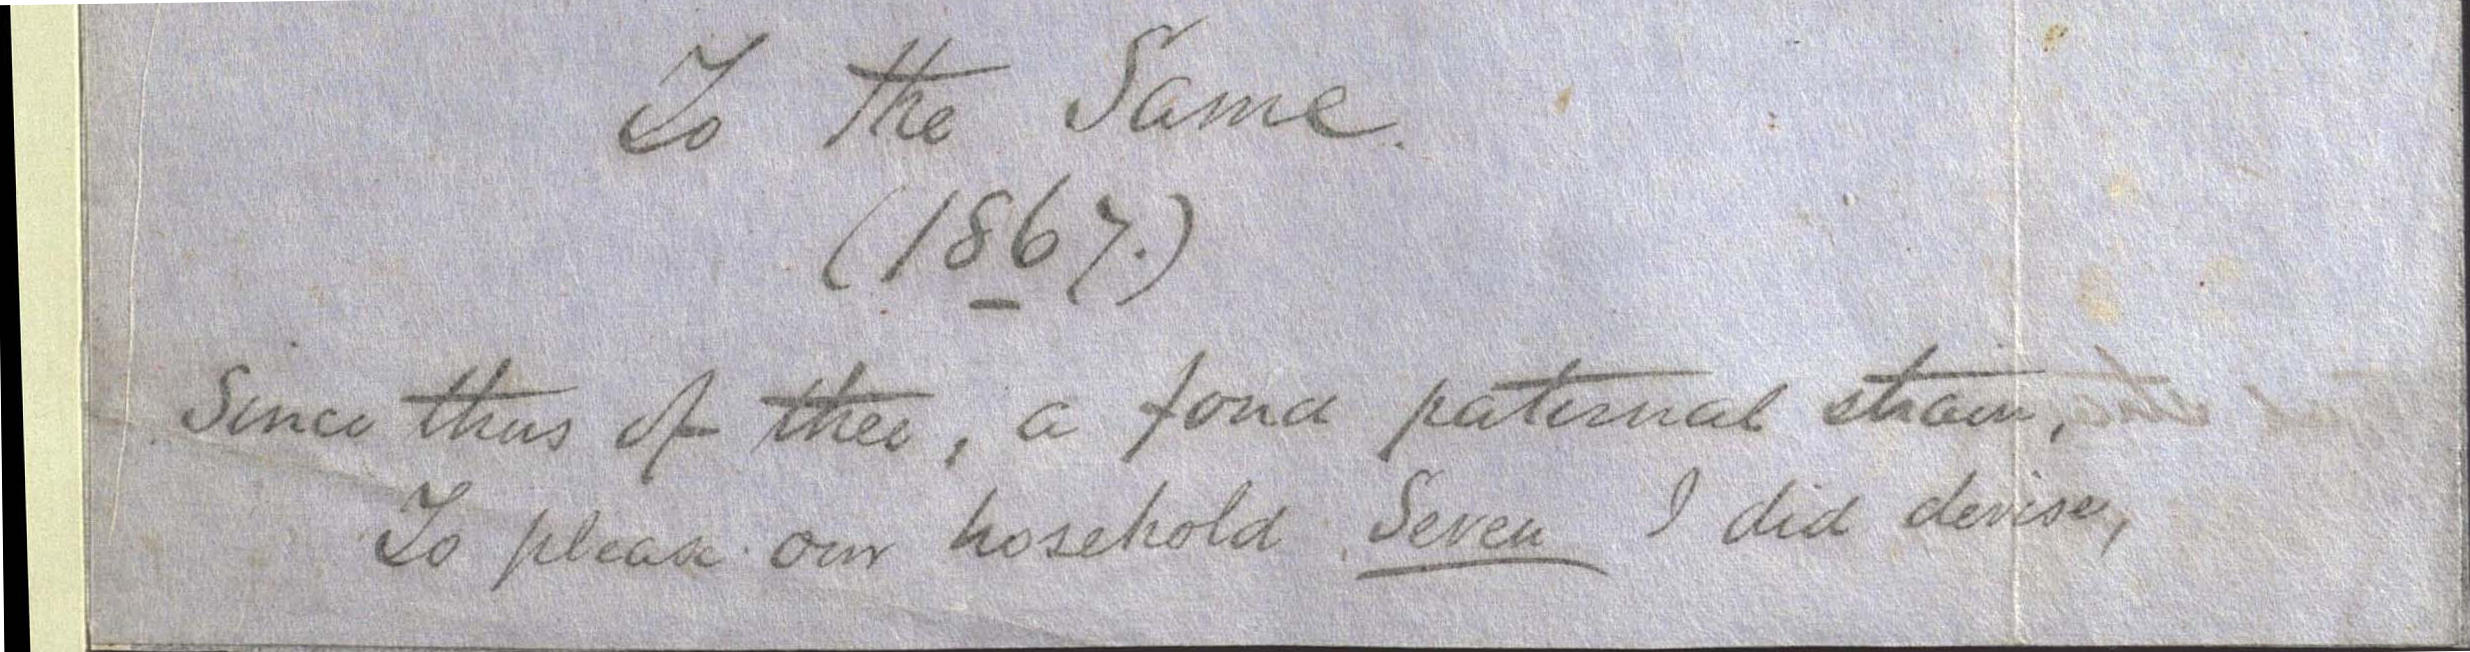 To the Same.
(1867.)
Since thus of thee, a fond paternal strain,
To please our hosehold Seven I did devise,